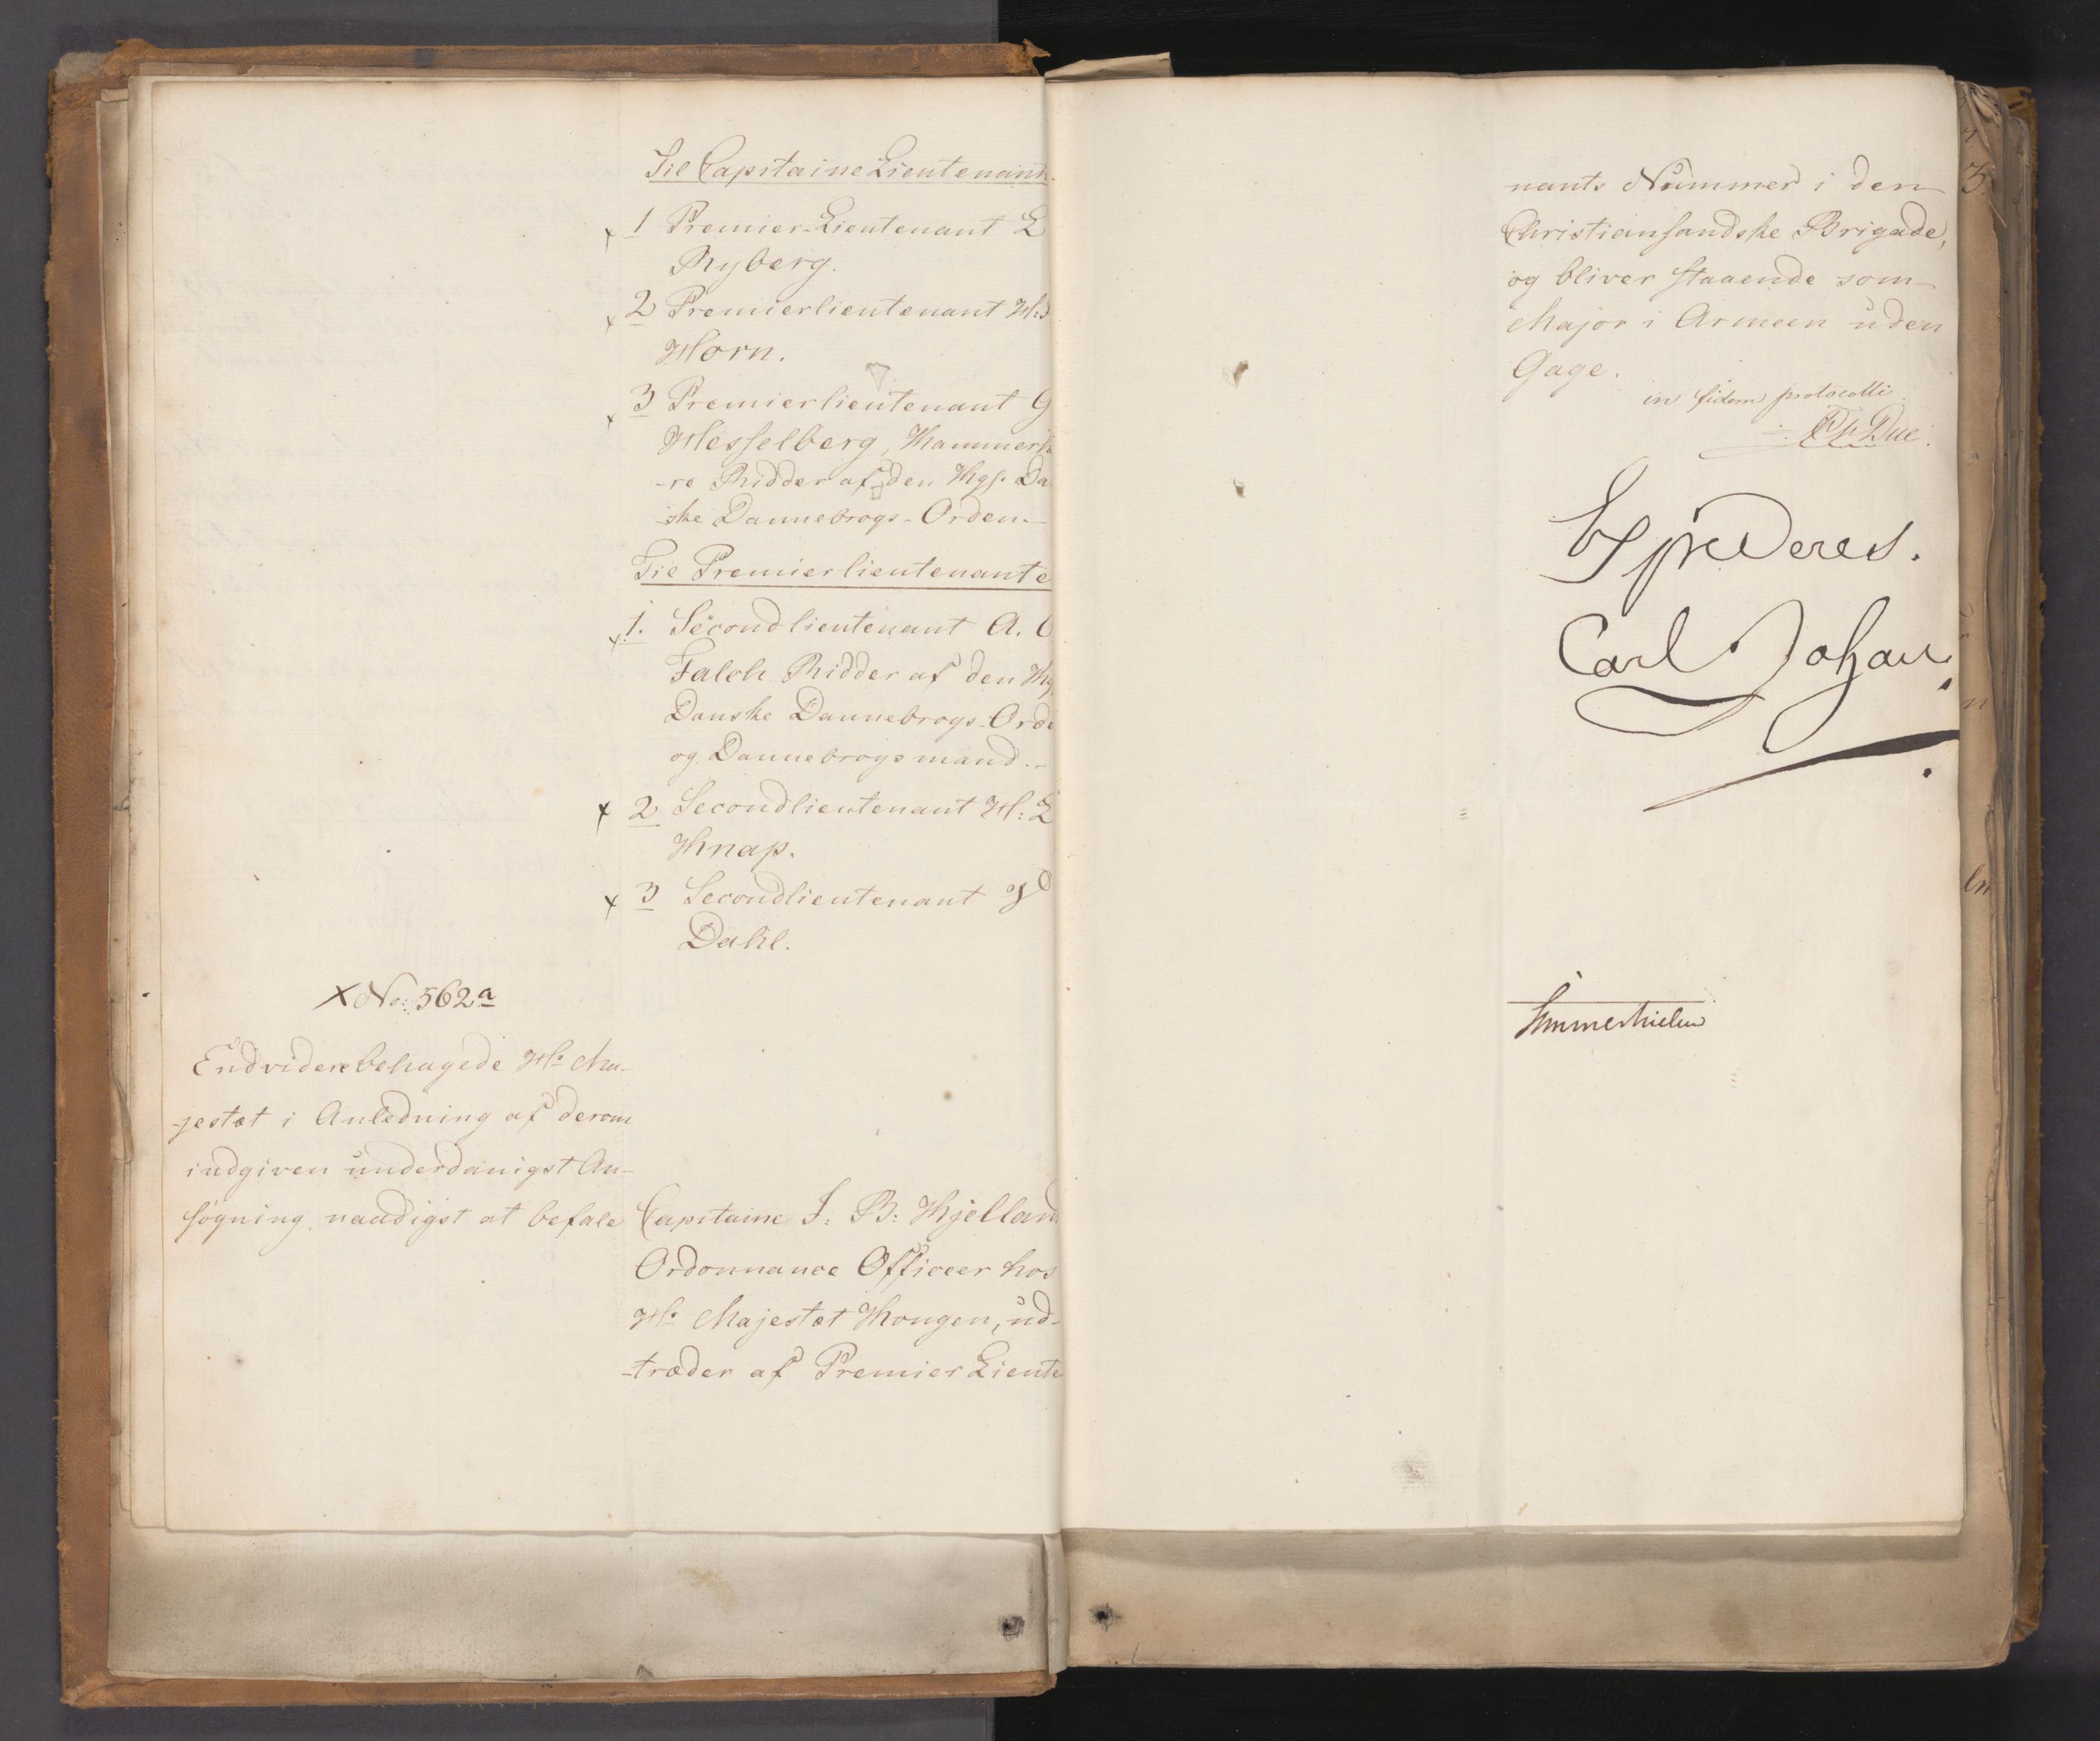 Til Capitaine Lieutenant
x 1 Premier-Lieutenant L
Ryberg.
x 2 Premierlieutenant H:
Horn.
x 3 Premierlieutenant G
Hesselberg, Kammerh
-re Ridder af den Kgs. Da
-ske Dannebrogs-Orden.
Til Premierlieutenante
x 1. Secondlieutenant A.
Falch Ridder af den Kg
Danske Dannebrogs-Orde
og Dannebrogsmand.-
x 2 Secondlieutenant H: L
Knap.
x 3 Secondlieutenant
Dahl.
X No: 562a
Endvidere behagede Hs. Ma-
-jestæt i Anledning af derom
indgiven underdanigst An-
søgning, naadigst at befale
Capitaine J. B: Kjelland
Ordonnance Officeer hos
Hs. Majestæt Kongen, ud-
-træder af Premier Lieute
nants Nummer i den
Christiansandske Brigade,
og bliver staaende som
Major i Armeen uden
Gage.
in fidem protocolli
Due.
Expederes.
Carl Johan